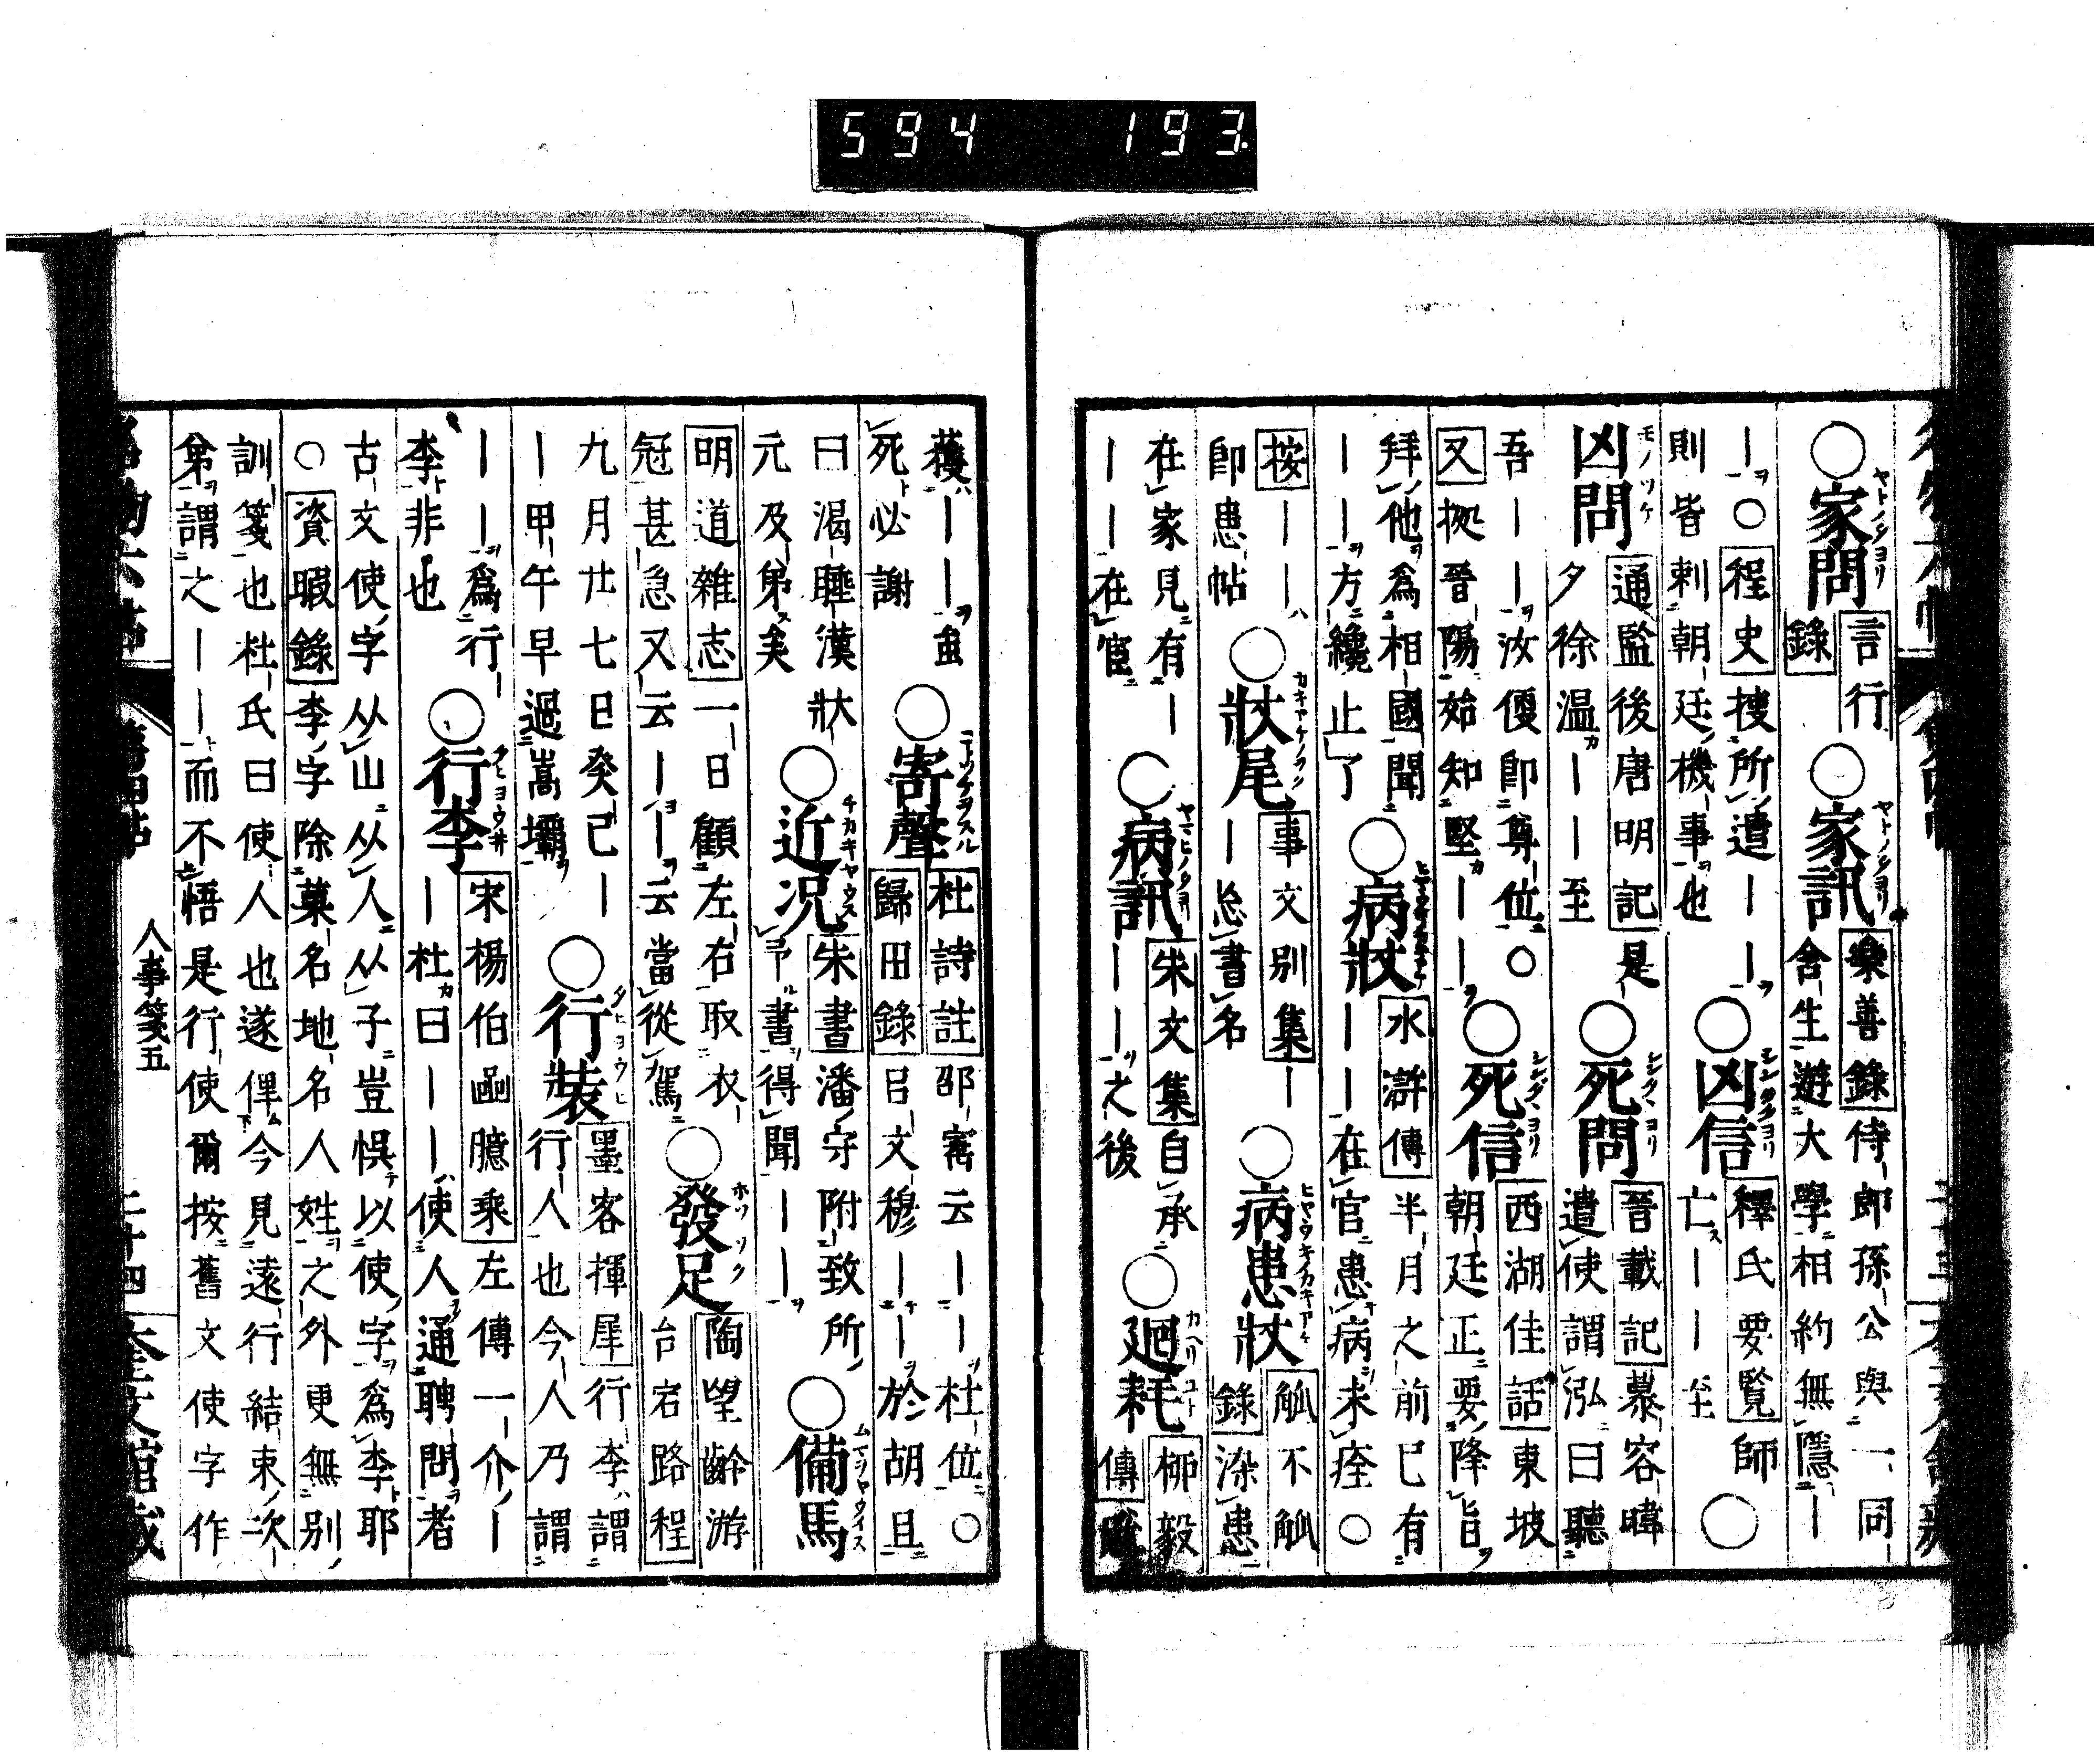 ○家問 言行錄 ○家訊 樂善錄侍郎孫公與一同舍生遊大學相約無隱一
一○程史搜所遣一一則皆剌朝廷機事也 ○凶信 釋氏要覽師亡一一至 ○
凶問 通鑑後唐明記是夕徐温一一至 ○死問 晉載記慕容暐遣使謂泓曰聽
吾一一汝便卽尊位○又拠晉陽始知堅一一 ○死信 西湖佳話東坡朝廷正要降旨
拜他爲相國聞一一方纔止了 ○病狀 水滸傳半月之前已有一一在官患病未痊○
按一一卽患帖 ○狀尾 事文別集一一忩書名 ○病患狀 觚不觚錄染患
在家見有一一一在宦 ○病訊 朱文集自承一一之後 ○廻耗 柳毅傳
獲一一死必謝 ○寄聲 杜詩註邵寓云一一杜位○歸田錄呂文穆一一於胡旦
曰渴睡漢狀元及第矣 ○近况 朱書潘守附致所予書得聞一一 ○備馬
明道雜志一日顧左右取衣冠甚急又云一一云當從駕 ○發足 陶望齡游台宕路程
九月廿七日癸巳一一甲午早過嵩壩 ○行裝 墨客揮犀行李謂行人也今人乃謂
一一爲行李非也 ○行李 宋楊伯嵒臆乘左傳一介一一杜曰一一使人通聘問者
古文使字从山从人从子豈悞以使字爲李耶○資暇錄李字除菓名地名人姓之外更無別
訓箋也杜氏曰使人也遂俾今見遠行結束次第謂之一一而不悟是行使爾按舊文使字作
人事箋五
594 193